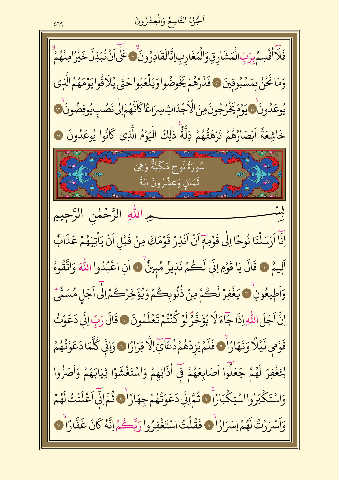 اَلْجُزْءُ التَّاسِعُ وَالْعِشْرُونَ
فَلَٓا اُقْسِمُ بِرَبِّ الْمَشَارِقِ وَالْمَغَارِبِ اِنَّا لَقَادِرُونَ عَلٰٓى اَنْ نُبَدِّلَ خَيْرًا مِنْهُمْ
وَمَا نَحْنُ بِمَسْبُوقِينَ فَذَرْهُمْ يَخُوضُوا وَيَلْعَبُوا حَتّٰى يُلَاقُوا يَوْمَهُمُ الَّذِى
يُوعَدُونَ يَوْمَ يَخْرُجُونَ مِنَ الْاَجْدَاثِ سِرَاعًا كَاَنَّهُمْ اِلٰى نُصُبٍ يُوفِضُونَ
خَاشِعَةً اَبْصَارُهُمْ تَرْهَقُهُمْ ذِلَّةٌ ذٰلِكَ الْيَوْمُ الَّذِى كَانُوا يُوعَدُونَ
سُورَةُ نُوحٍ مَكِّيَّةٌ وَهِيَ
ثَمَانٍ وَعِشْرُونَ اٰيَةً
بِسْمِ اللّٰهِ الرَّحْمٰنِ الرَّحِيمِ
اِنَّٓا اَرْسَلْنَا نُوحًا اِلٰى قَوْمِهٓ اَنْ اَنْذِرْ قَوْمَكَ مِنْ قَبْلِ اَنْ يَاْتِيَهُمْ عَذَابٌ
اَلِيمٌ قَالَ يَا قَوْمِ اِنّٖى لَكُمْ نَذِيرٌ مُبِينٌ اَنِ اعْبُدُوا اللّٰهَ وَاتَّقُوهُ
وَاَطِيعُونِ يَغْفِرْ لَكُمْ مِنْ ذُنُوبِكُمْ وَيُؤَخِّرْكُمْ اِلٰٓى اَجَلٍ مُسَمًّى
اِنَّ اَجَلَ اللّٰهِ اِذَا جَٓاءَ لَا يُؤَخَّرُ لَوْ كُنْتُمْ تَعْلَمُونَ قَالَ رَبِّ اِنّٖى دَعَوْتُ
قَوْمٖى لَيْلًا وَنَهَارًا فَلَمْ يَزِدْهُمْ دُعَٓاءٖٓى اِلَّا فِرَارًا وَاِنّٖى كُلَّمَا دَعَوْتُهُمْ
لِتَغْفِرَ لَهُمْ جَعَلُٓوا اَصَابِعَهُمْ فٖٓى اٰذَانِهِمْ وَاسْتَغْشَوْا ثِيَابَهُمْ وَاَصَرُّوا
وَاسْتَكْبَرُوا اسْتِكْبَارًا ثُمَّ اِنّٖى دَعَوْتُهُمْ جِهَارًا ثُمَّ اِنّٖٓى اَعْلَنْتُ لَهُمْ
وَاَسْرَرْتُ لَهُمْ اِسْرَارًا فَقُلْتُ اسْتَغْفِرُوا رَبَّكُمْ اِنَّهُ كَانَ غَفَّارًا